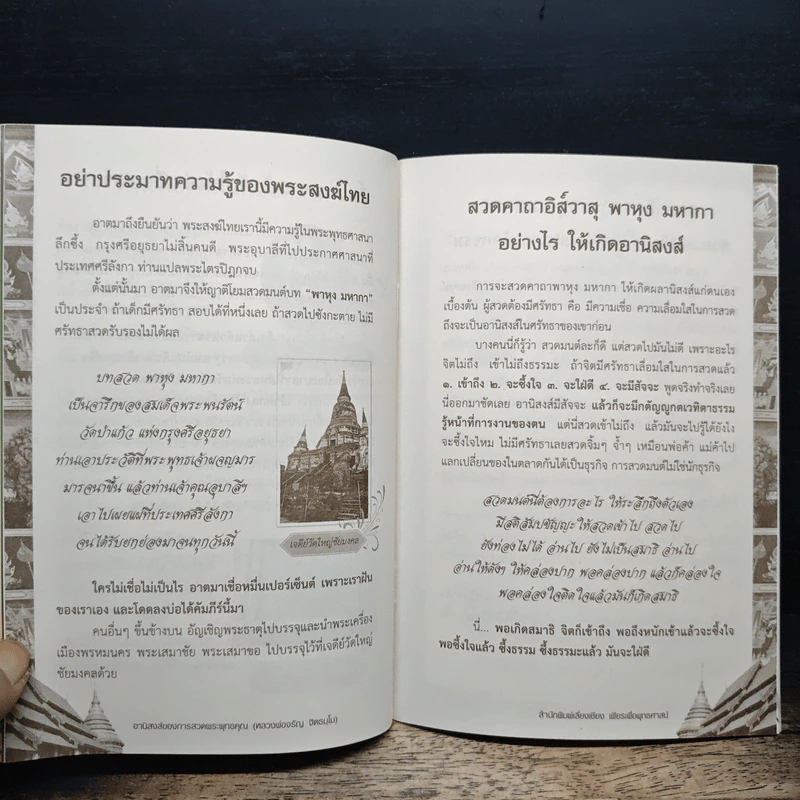 อย่าประมาทความรู้ของพระสงฆ์ไทย
อาตมาถึงยืนยันว่า พระสงฆ์ไทยเรานี้มีความรู้ในพระพุทธศาสนา
ลึกซึ้ง กรุงศรีอยุธยาไม่สิ้นคนดี พระอุบาลีที่ไปประกาศศาสนาที่
ประเทศศรีลังกา ท่านแปลพระไตรปิฎกจบ
ตั้งแต่นั้นมา อาตมาจึงให้ญาติโยมสวดมนต์บท "พาหุง มหากา"
เป็นประจำ ถ้าเด็กมีศรัทธา สอบได้ที่หนึ่งเลย ถ้าสวดไปซังกะตาย ไม่มี
ศรัทธาสวดรับรองไม่ได้ผล
บทสวด พาหุง มหากา
เป็นจารึกของสมเด็จพระพนรัตน์
วัดป่าแก้ว แห่งกรุงศรีอยุธยา
ท่านเอาประวัติที่พระพุทธเจ้าผจญมาร
มารจนาขึ้น แล้วท่านเจ้าคุณอุบาลีฯ
เอาไปเผยแผ่ที่ประเทศศรีลังกา
จนได้รับยกย่องมาจนทุกวันนี้
เจดีย์วัดใหญ่ชัยมงคล
ใครไม่เชื่อไม่เป็นไร อาตมาเชื่อหมื่นเปอร์เซ็นต์ เพราะเราฝัน
ของเราเอง และโดดลงบ่อได้คัมภีร์นี้มา
คนอื่นๆ ขึ้นข้างบน อัญเชิญพระธาตุไปบรรจุและนำพระเครื่อง
เมืองพรหมนคร พระเสมาชัย พระเสมาขอ ไปบรรจุไว้ที่เจดีย์วัดใหญ่
ชัยมงคลด้วย
อานิสงส์ของการสวดพระพุทธคุณ (หลวงพ่อจรัญ ฐิตธมฺโม)
สวดคาถาอิส์วาสุ พาหุง มหากา
อย่างไร ให้เกิดอานิสงส์
การจะสวดคาถาพาหุง มหากา ให้เกิดผลานิสงส์แก่ตนเอง
เบื้องต้น ผู้สวดต้องมีศรัทธา คือ มีความเชื่อ ความเลื่อมใสในการสวด
ถึงจะเป็นอานิสงส์ในศรัทธาของเขาก่อน
บางคนนี่ก็รู้ว่า สวดมนต์ละก็ดี แต่สวดไปมันไม่ดี เพราะอะไร
จิตไม่ถึง เข้าไม่ถึงธรรมะ ถ้าจิตมีศรัทธาเลื่อมใสในการสวดแล้ว
๑. เข้าถึง ๒. จะซึ้งใจ ๓. จะใฝ่ดี ๔. จะมีสัจจะ พูดจริงทำจริงเลย
นี่ออกมาชัดเลย อานิสงส์มีสัจจะ แล้วก็จะมีกตัญญูกตเวทิตาธรรม
รู้หน้าที่การงานของตน แต่นี่สวดเข้าไม่ถึง แล้วมันจะไปรู้ได้ยังไง
จะซึ้งใจไหม ไม่มีศรัทธาเลยสวดจิ้มๆ จ้ำๆ เหมือนพ่อค้า แม่ค้าไป
แลกเปลี่ยนของในตลาดกันได้เป็นธุรกิจ การสวดมนต์ไม่ใช่นักธุรกิจ
สวดมนต์นี่ต้องการอะไร ให้ระลึกถึงตัวเอง
มีสติสัมปชัญญะให้สวดเข้าไป สวดไป
ยังท่องไม่ได้ อ่านไป ยังไม่เป็นสมาธิ อ่านไป
อ่านให้ดังๆ ให้คล่องปาก พอคล่องปาก แล้วก็คล่องใจ
พอคล่องใจติดใจแล้วมันก็เกิดสมาธิ
นี่... พอเกิดสมาธิ จิตก็เข้าถึง พอถึงหนักเข้าแล้วจะซึ้งใจ
พอซึ้งใจแล้ว ซึ้งธรรม ซึ้งธรรมะแล้ว มันจะใฝ่ดี
สำนักพิมพ์เลี่ยงเชียง เพียรเพื่อพุทธศาสน์